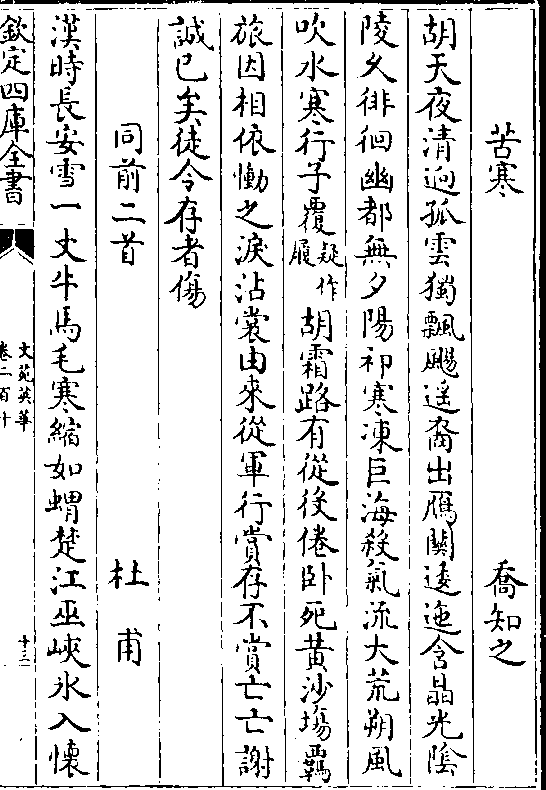 苦寒 喬知之
胡天夜清迥孤雲獨飄颺遥裔出鴈關逶迤含晶光陰
陵久徘徊幽都無夕陽初寒凍巨海殺氣流大荒朔風
吹水寒行子覆疑作履胡霜路有從役倦卧死黄沙塲羇
旅因相依慟之淚沾裳由來從軍行賞存不賞亡亡謝
誠已矣徒令存者傷
同前二首 杜甫
漢時長安雪一丈牛馬毛寒縮如蝟楚江巫峽氷入懐
欽定四庫全書
文苑英華
卷二百十
十三